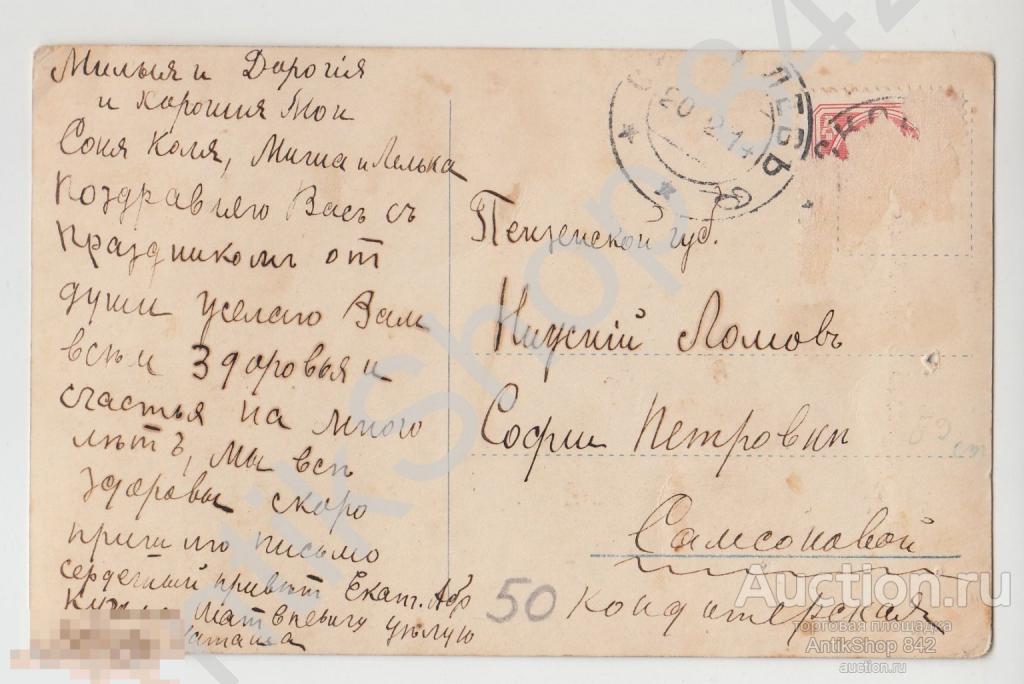 Милыя и Дорогія
и Хорошия Мои
Соня Коля, Миша и Лелька
Поздравляю Васъ съ
праздникомъ от
души желаю Вам
всѣм Здоровья и
счастья на много
лѣтъ, мы всѣ
здоровы скоро
пришлю письмо
сердечный привѣт Екат. Абр
Матвѣевичу цѣлую
20 2 14
Пензенской губ.
Нижній Ломовъ
Софии Петровны
Самсоновой
Кондитерская
50
AntikShop 842
Auction.ru
торговая площадка
AntikShop 842
auction.ru